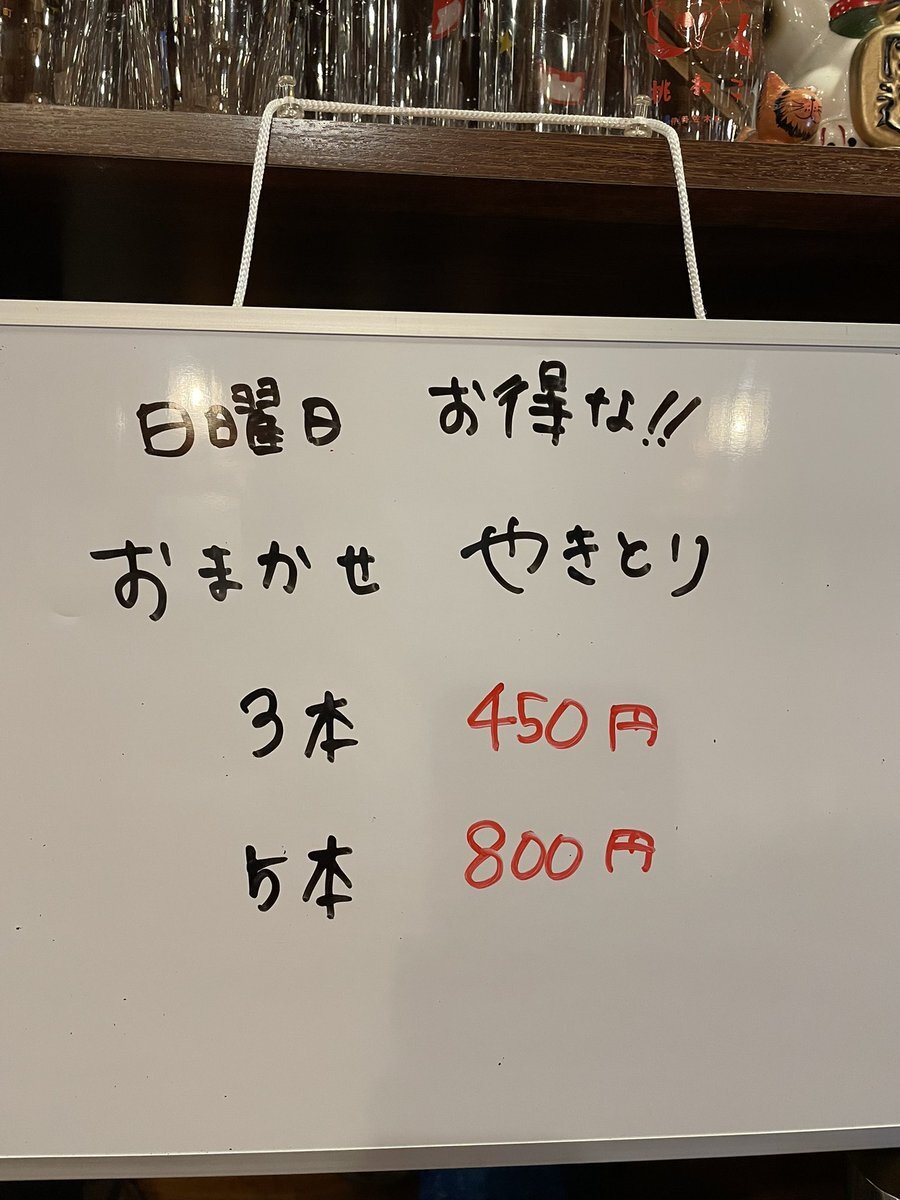 日曜日 お得な!!
おまかせ やきとり
3本 450円
5本 800円